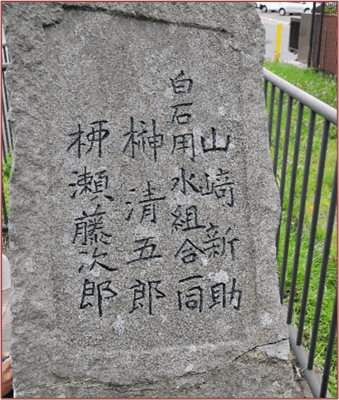 山崎新助
白石用水組合一同
榊清五郎
栁瀬藤次郎